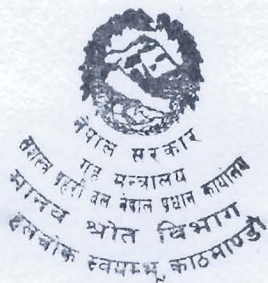 नेपाल सरकार
गृह मन्त्रालय
सशस्त्र प्रहरी बल नेपाल प्रधान कार्यालय
मानव श्रोत विभाग
हलचोक स्वयम्भू, काठमाण्डौ